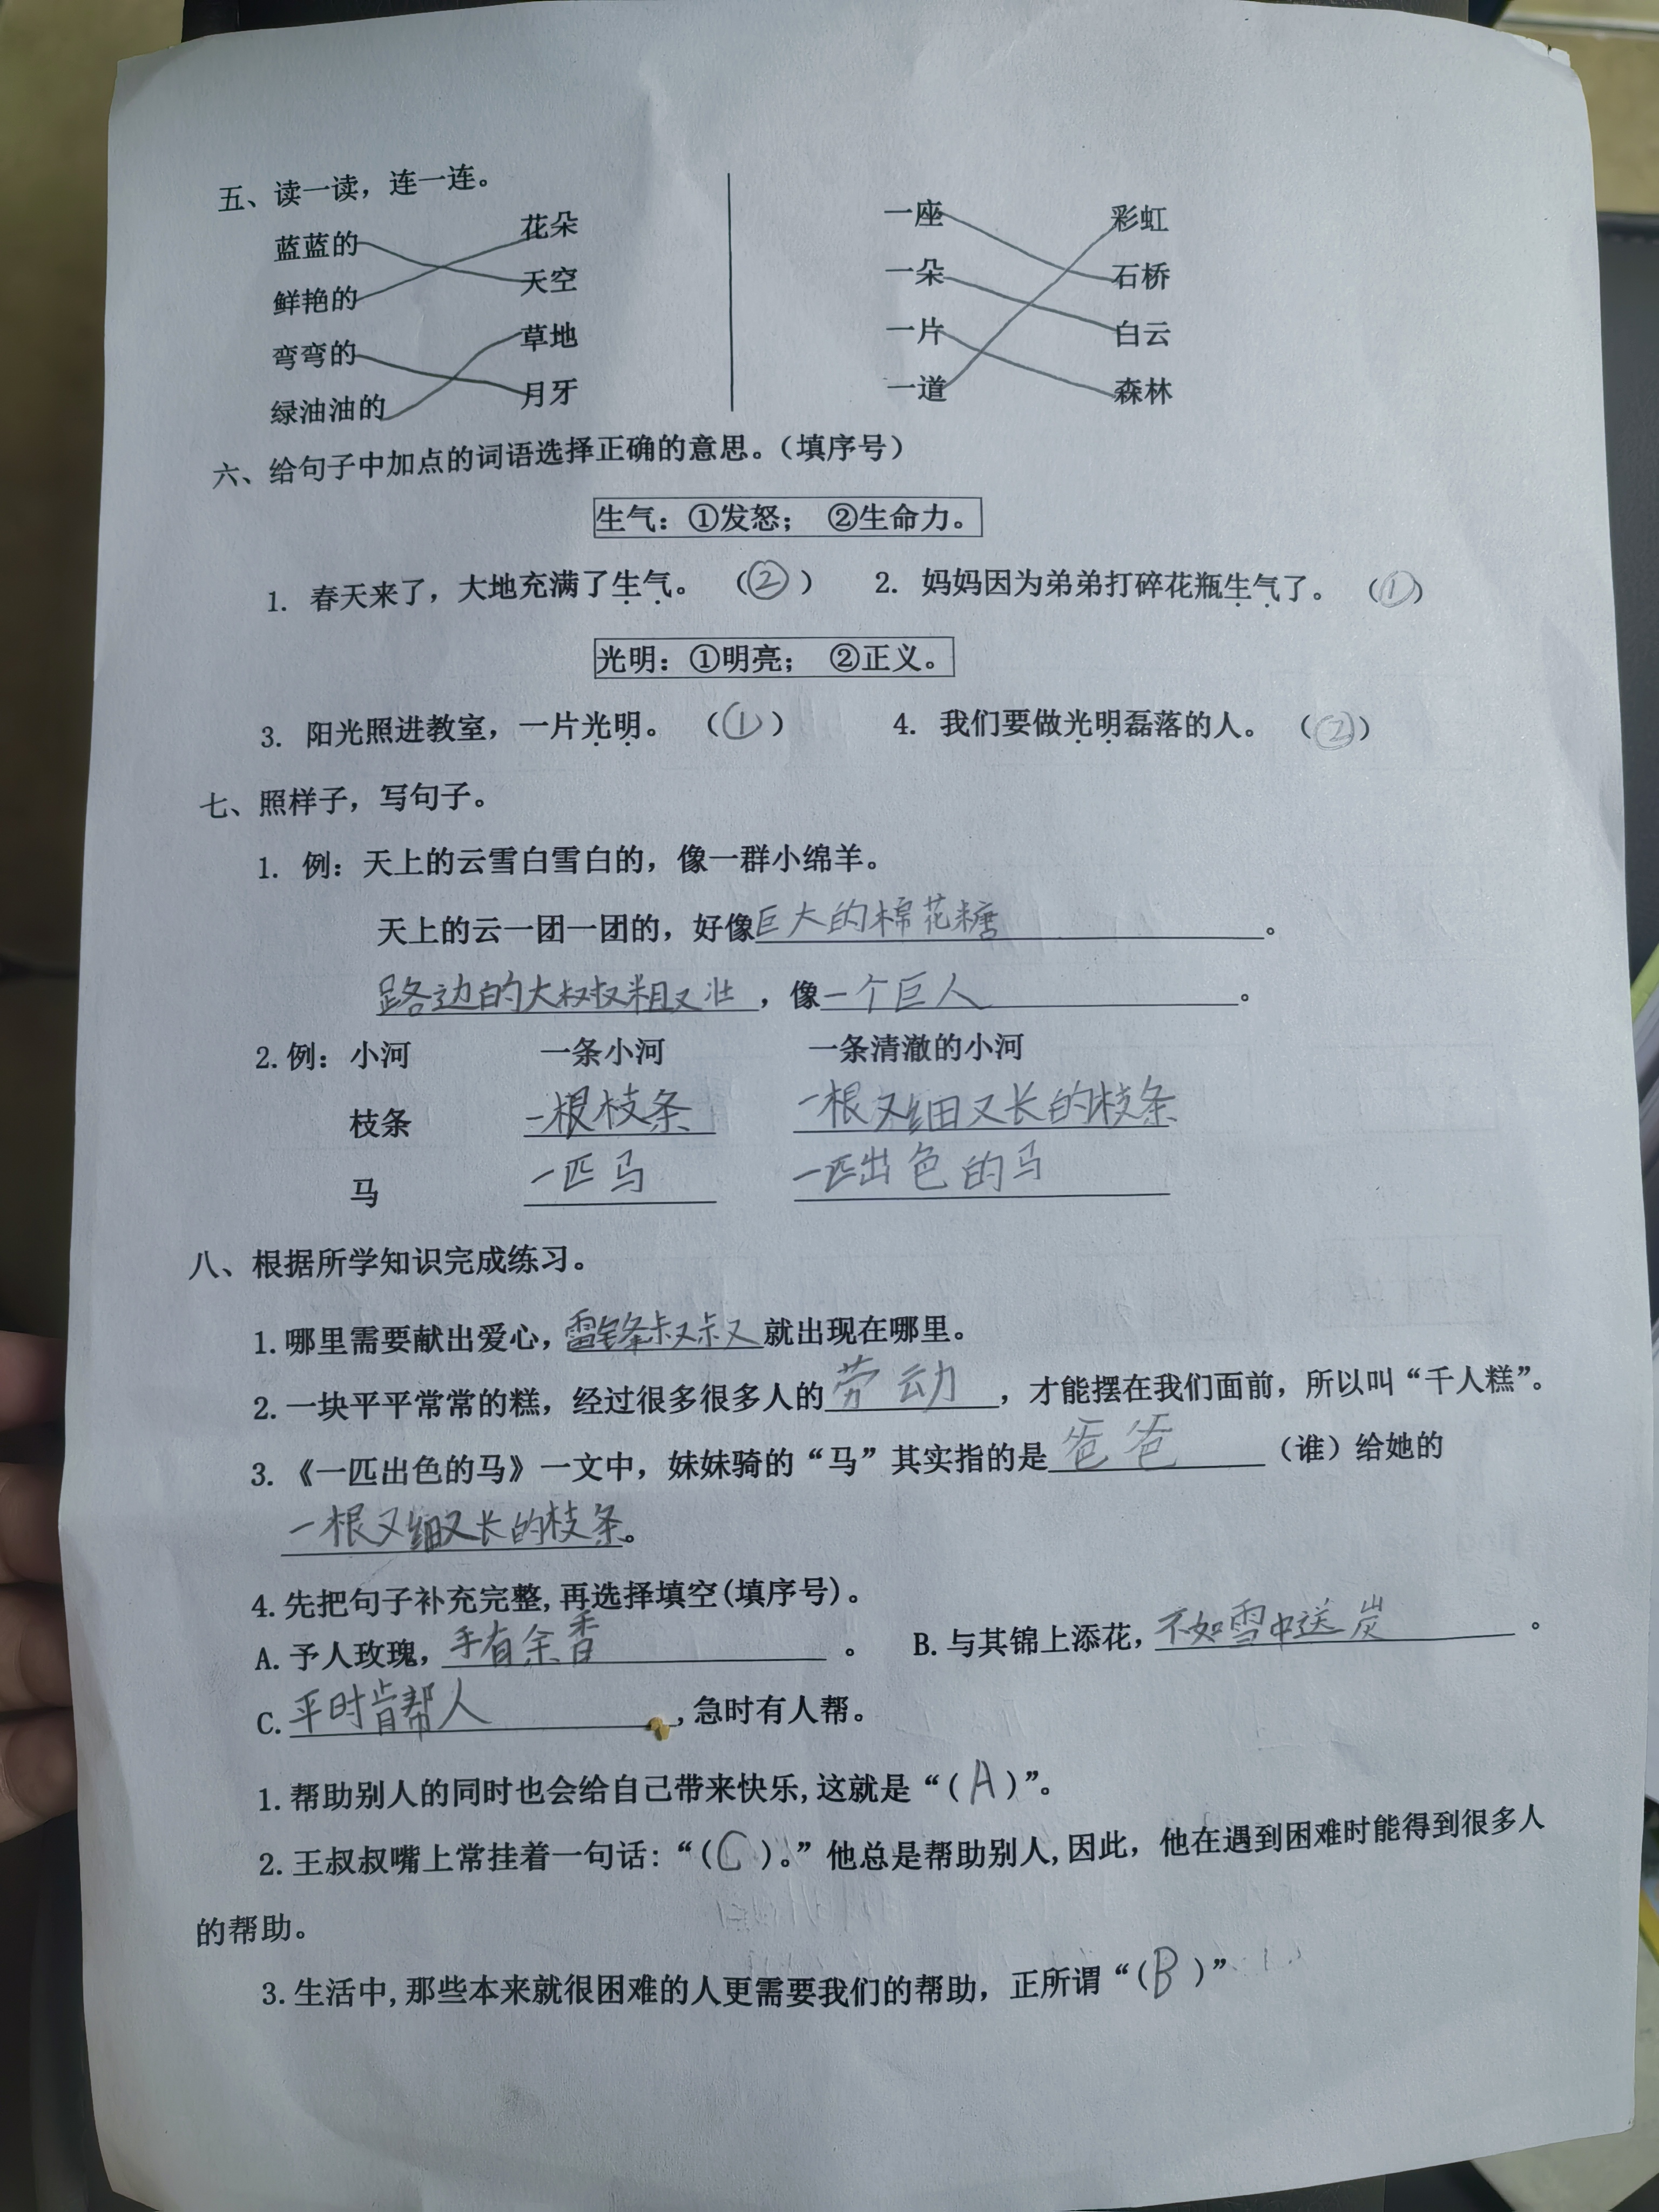 五、读一读，连一连。
蓝蓝的 花朵 一座 彩虹
鲜艳的 天空 一朵 石桥
弯弯的 草地 一片 白云
绿油油的 月牙 一道 森林
六、给句子中加点的词语选择正确的意思。（填序号）
生气：①发怒； ②生命力。
1. 春天来了，大地充满了生气。（②） 2. 妈妈因为弟弟打碎花瓶生气了。（①）
光明：①明亮； ②正义。
3. 阳光照进教室，一片光明。（①） 4. 我们要做光明磊落的人。（②）
七、照样子，写句子。
1. 例：天上的云雪白雪白的，像一群小绵羊。
天上的云一团一团的，好像巨大的棉花糖。
路边的大叔叔粗又壮，像一个巨人。
2.例：小河 一条小河 一条清澈的小河
枝条 一根枝条 一根又细又长的枝条
马 一匹马 一匹出色的马
八、根据所学知识完成练习。
1.哪里需要献出爱心，雷锋叔叔就出现在哪里。
2.一块平平常常的糕，经过很多很多人的劳动，才能摆在我们面前，所以叫“千人糕”。
3.《一匹出色的马》一文中，妹妹骑的“马”其实指的是爸爸（谁）给她的
一根又细又长的枝条。
4.先把句子补充完整,再选择填空(填序号)。
A.予人玫瑰，手有余香。 B.与其锦上添花，不如雪中送炭。
C.平时肯帮人,急时有人帮。
1.帮助别人的同时也会给自己带来快乐,这就是“(A)”。
2.王叔叔嘴上常挂着一句话:“(C)。”他总是帮助别人,因此，他在遇到困难时能得到很多人
的帮助。
3.生活中,那些本来就很困难的人更需要我们的帮助，正所谓“(B)”